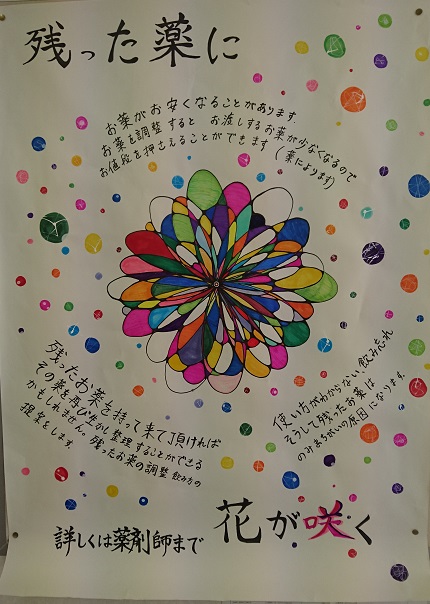 残った薬に
お薬がお安くなることがあります。
お薬を調整すると お渡しするお薬が少なくなるので
お値段を押さえることができます(薬によります)
使い方がわからない、飲み忘れ
そうして残ったお薬は
のみまちがいの原因になります。
残ったお薬を持って来て頂ければ
その薬を再び生かし整理することができる
かもしれません。残ったお薬の調整 飲み方の
提案をします。
花が咲く
詳しくは薬剤師まで